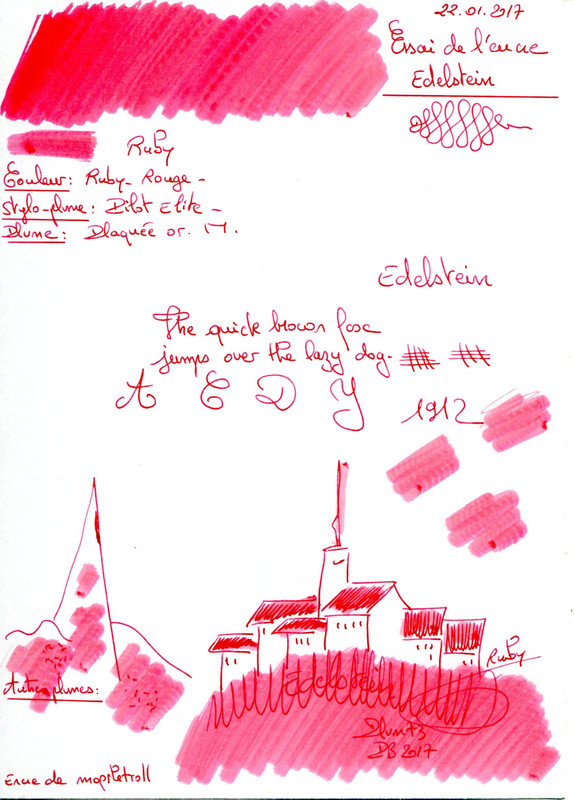 22.01.2017
Essai de l'encre
Edelstein
Ruby
Couleur: Ruby - Rouge -
Stylo-plume: Pilot Elite -
Plume: Plaquée or. M.
Edelstein
The quick brown fox
jumps over the lazy dog.
A E D Y
1912
Ruby
Edelstein
Autres plumes:
DB 2017
Encre de